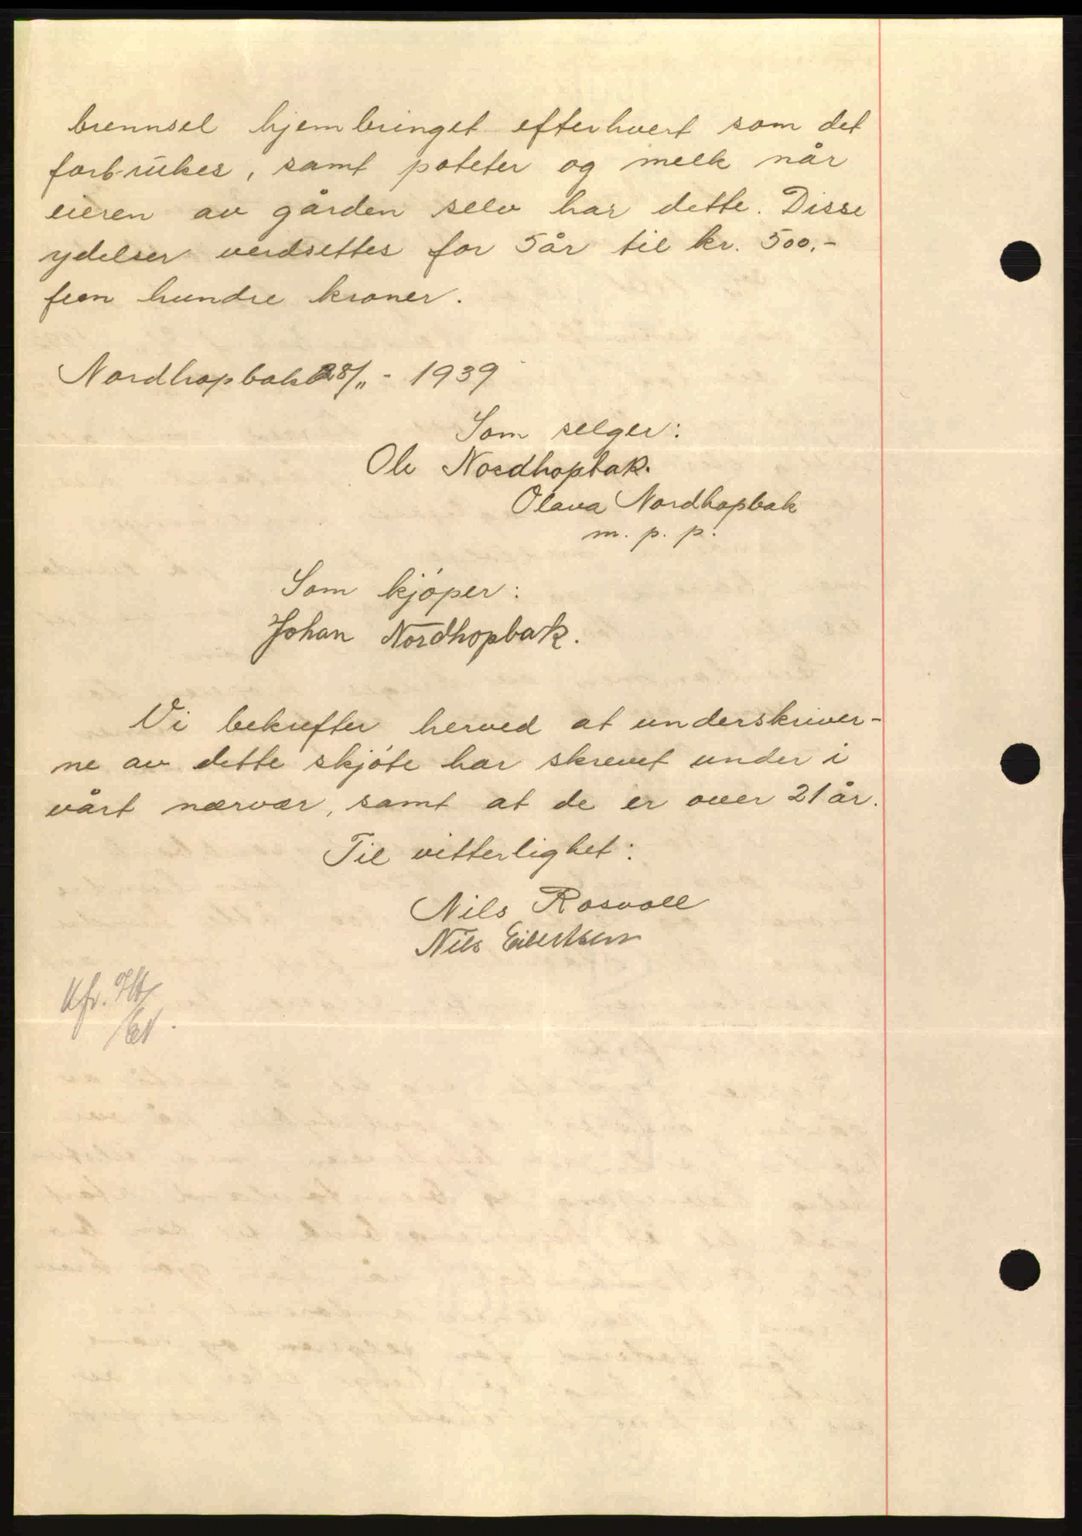 brennsel hjembringet efterhvert som det
forbrukes, samt poteter og melk når
eieren av gården selv har dette. Disse
ydelser verdsettes for 5 år til kr. 500,-
fem hundre kroner.
Nordhopbak 28/11 - 1939
Som selger:
Ole Nordhopbak.
Olava Nordhopbak
m. p. p.
Som kjóper:
Johan Nordhopbak.
Vi bekrefter herved at underskriver-
ne av dette skjóte har skrevet under i
vårt nærvær, samt at de er over 21 år.
Til vitterlighet:
Nils Rosvoll
Nils Eilertsen
Kfr.